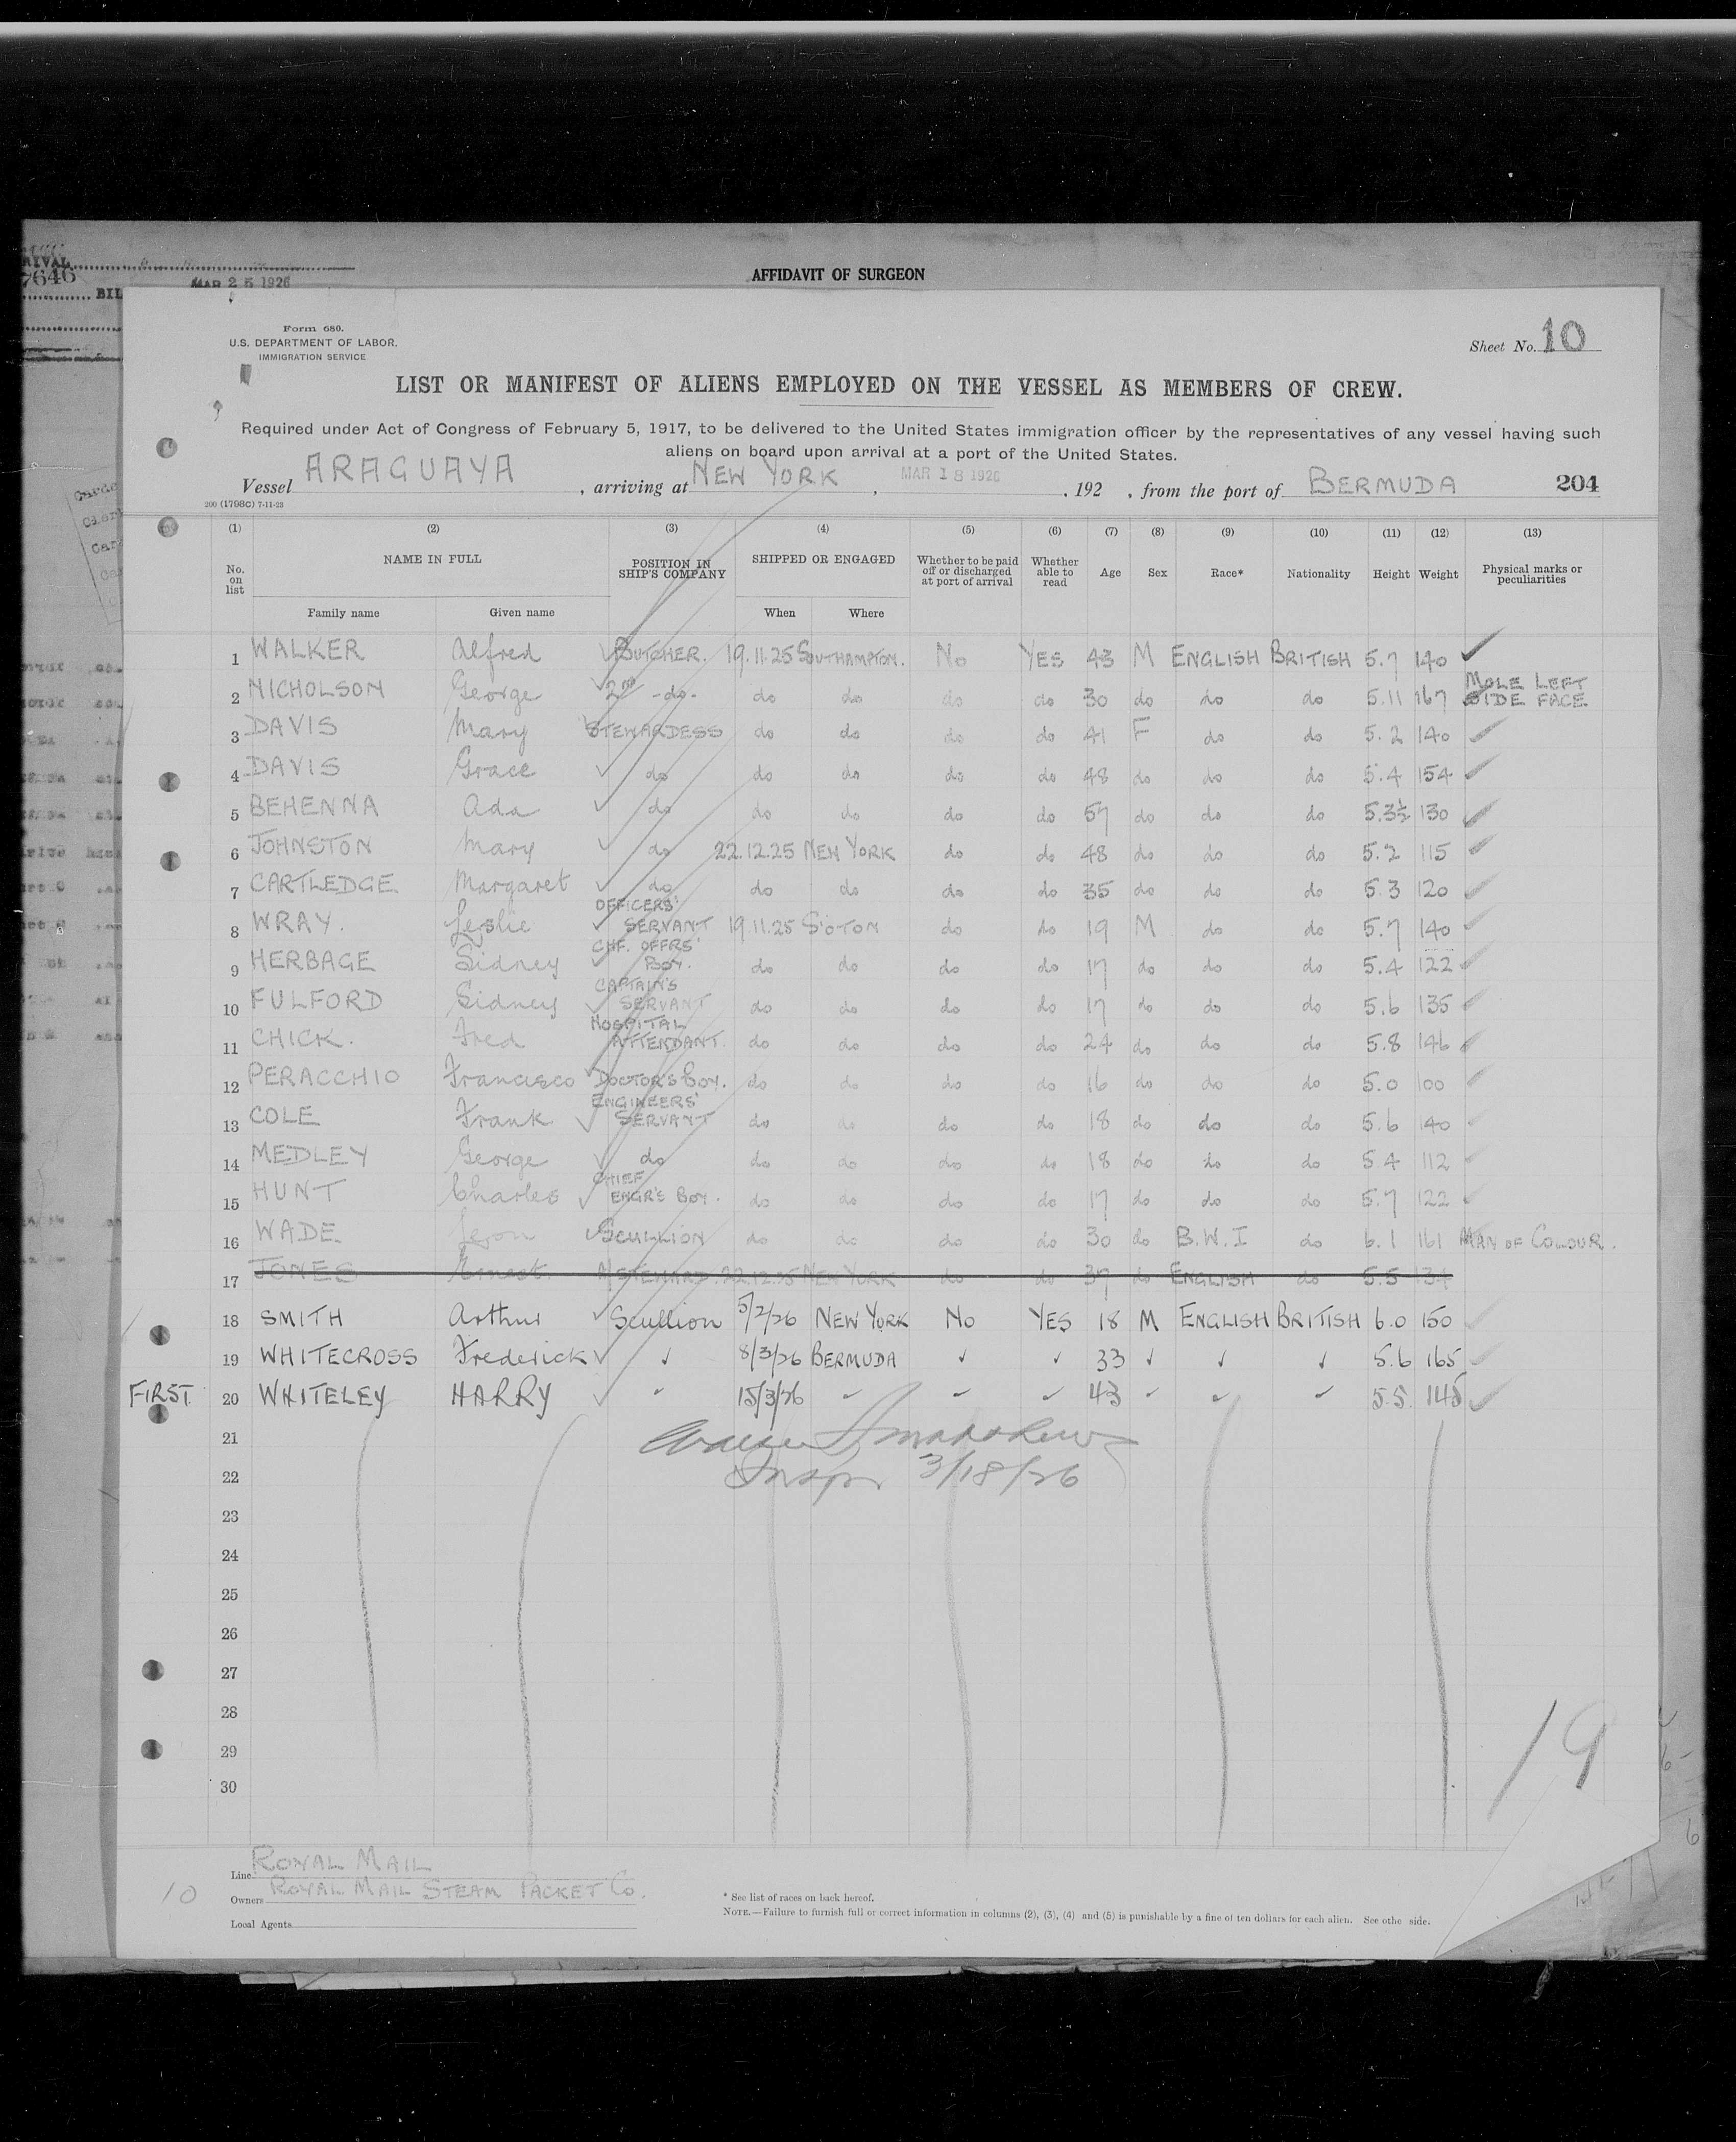 7646
MAR 25 1926
AFFIDAVIT OF SURGEON
Form 680.
U.S. DEPARTMENT OF LABOR.
IMMIGRATION SERVICE
Sheet No. 10
LIST OR MANIFEST OF ALIENS EMPLOYED ON THE VESSEL AS MEMBERS OF CREW.
Required under Act of Congress of February 5, 1917, to be delivered to the United States immigration officer by the representatives of any vessel having such
aliens on board upon arrival at a port of the United States.
Vessel ARAGUAYA, arriving at NEW YORK, MAR 18 1926, 192 , from the port of BERMUDA 204
200 (1798c) 7-11-23
(1) (2) (3) (4) (5) (6) (7) (8) (9) (10) (11) (12) (13)
No. on list NAME IN FULL POSITION IN SHIP'S COMPANY SHIPPED OR ENGAGED Whether to be paid off or discharged at port of arrival Whether able to read Age Sex Race* Nationality Height Weight Physical marks or peculiarities
Family name Given name When Where
1 WALKER Alfred BUTCHER. 19.11.25 SOUTHAMPTON. No YES 43 M ENGLISH BRITISH 5.7 140
2 NICHOLSON George 2nd -do- do do do do 30 do do do 5.11 167 MOLE LEFT SIDE FACE
3 DAVIS Mary STEWARDESS do do do do 41 F do do 5.2 140
4 DAVIS Grace do do do do do 48 do do do 5.4 154
5 BEHENNA Ada do do do do do 57 do do do 5.3½ 130
6 JOHNSTON Mary do 22.12.25 NEW YORK do do 48 do do do 5.2 115
7 CARTLEDGE Margaret do do do do do 35 do do do 5.3 120
8 WRAY. Leslie OFFICERS' SERVANT 19.11.25 S'OTON do do 19 M do do 5.7 140
9 HERBAGE Sidney CHF. OFFRS' BOY. do do do do 17 do do do 5.4 122
10 FULFORD Sidney CAPTAIN'S SERVANT do do do do 17 do do do 5.6 135
11 CHICK. Fred HOSPITAL ATTENDANT. do do do do 24 do do do 5.8 146
12 PERACCHIO Francisco DOCTOR'S BOY. do do do do 16 do do do 5.0 100
13 COLE Frank ENGINEERS' SERVANT do do do do 18 do do do 5.6 140
14 MEDLEY George do do do do do 18 do do do 5.4 112
15 HUNT Charles CHIEF ENGR'S BOY. do do do do 17 do do do 5.7 122
16 WADE Leon SCULLION do do do do 30 do B.W.I do 6.1 161 MAN OF COLOUR.
17 JONES Ernest A/STEWARD. 22.12.25 NEW YORK do do 37 do ENGLISH do 5.5 134
18 SMITH Arthur Scullion 5/2/26 NEW YORK No YES 18 M ENGLISH BRITISH 6.0 150
19 WHITECROSS Frederick 8/3/26 BERMUDA 33 5.6 165
FIRST. 20 WHITELEY HARRY 15/3/26 43 5.5. 145
21
22 Inspr 3/18/26
23
24
25
26
27
28
29
30
19
Line ROYAL MAIL
10 Owners ROYAL MAIL STEAM PACKET Co.
Local Agents
* See list of races on back hereof.
NOTE.—Failure to furnish full or correct information in columns (2), (3), (4) and (5) is punishable by a fine of ten dollars for each alien. See othe side.